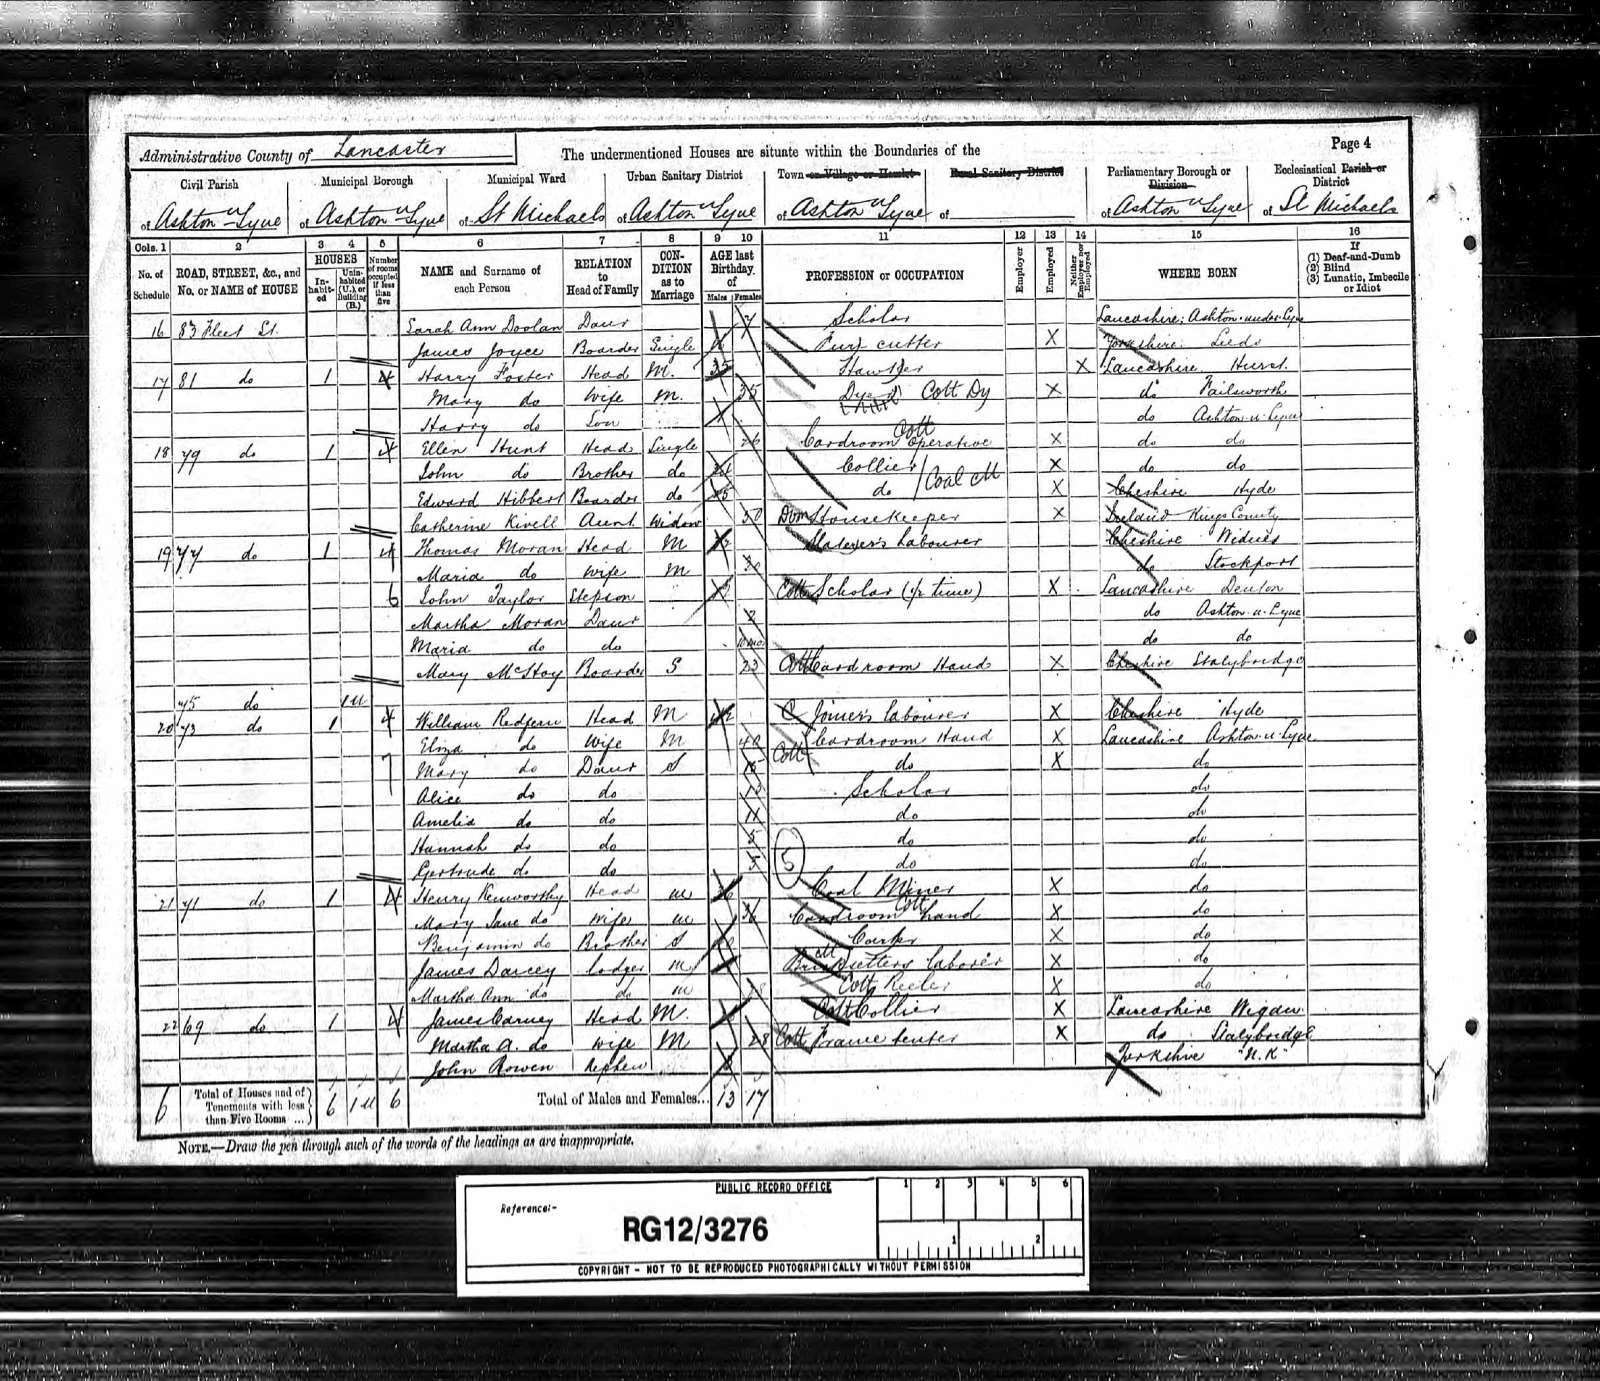 Administrative County of Lancaster
The undermentioned Houses are situate within the Boundaries of the
Page 4
Civil Parish
Municipal Borough
Municipal Ward
Urban Sanitary District
Town or Village or Hamlet
Rural Sanitary District
Parliamentary Borough or Division
Ecclesiastical Parish or District
of Ashton u Lyne
of Ashton u Lyne
of St Michaels
of Ashton u Lyne
of Ashton u Lyne
of
of Ashton u Lyne
of St Michaels
Cols. 1 2 3 4 5 6 7 8 9 10 11 12 13 14 15 16
No. of Schedule
ROAD, STREET, &c., and No. or NAME of HOUSE
HOUSES
In-habit-ed
Unin-habited (U.), or Building (B.)
Number of rooms occupied if less than five
NAME and Surname of each Person
RELATION to Head of Family
CON-DITION as to Marriage
AGE last Birthday of
Males Females
PROFESSION or OCCUPATION
Employer
Employed
Neither Employer nor Employed
WHERE BORN
If
(1) Deaf-and-Dumb
(2) Blind
(3) Lunatic, Imbecile or Idiot
16 83 Fleet St. Sarah Ann Doolan Daur 7 Scholar Lancashire; Ashton-under-Lyne
James Joyce Boarder Single Fur cutter X Yorkshire Leeds
17 81 do 1 4 Harry Foster Head M. 35 Hawker X Lancashire Hurst
Mary do Wife M. 35 Cott Dy X do Failsworth
Harry do Son do Ashton-u-Lyne
18 79 do 1 4 Ellen Hunt Head Single 26 Cardroom Cott operative X do do
John do Brother do 24 Collier Coal M X do do
Edward Hibbert Boarder do 25 do X Cheshire Hyde
Catherine Kivell Aunt Widow 50 Dom Housekeeper X Ireland Kings County
19 77 do 1 4 Thomas Moran Head M Slater's Labourer Cheshire Widnes
Maria do Wife M 30 do Stockport
6 John Taylor Stepson 13 Cott Scholar (½ time) X Lancashire Denton
Martha Moran Daur 2 do Ashton-u-Lyne
Maria do do 10 mo. do do
Mary McHoy Boarder S 23 Cott Cardroom Hand X Cheshire Stalybridge
75 do 1u
20 73 do 1 4 William Redfern Head M 42 Joiner's labourer X Cheshire Hyde
Eliza do Wife M 40 Cott Cardroom Hand X Lancashire Ashton-u-Lyne
7 Mary do Daur S 15 do X do
Alice do do 12 Scholar do
Amelia do do 11 do do
Hannah do do 5 do do
Gertrude do do 3 5 do do
21 71 do 1 4 Henry Kenworthy Head M 36 Coal Miner X do
Mary Jane do Wife M 36 Cardroom Cott hand X do
Benjamin do Brother S Carter X do
James Darcey lodger M Bricksetters laborer X do
Martha Ann do do M Cott Reeler X do
22 69 do 1 4 James Carney Head M. Collier X Lancashire Wigan
Martha A. do Wife M 28 Cott Frame tenter X do Stalybridge
John Rowen Nephew 8 Yorkshire "N.K"
6 Total of Houses and of Tenements with less than Five Rooms ... 6 1u 6 Total of Males and Females... 13 17
NOTE.—Draw the pen through such of the words of the headings as are inappropriate.
PUBLIC RECORD OFFICE
1 2 3 4 5 6
Reference:-
RG12/3276
1 2
COPYRIGHT - NOT TO BE REPRODUCED PHOTOGRAPHICALLY WITHOUT PERMISSION